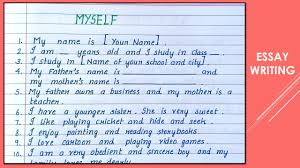 MYSELF
1. My name is [Your Name].
2. I am ___ years old and I study in class __.
3. I study in [Name of your school and city].
4. My Father's name is ________ and my
mother's name is ________.
5. My father owns a business and my mother is a
teacher.
6. I have a younger sister. She is very sweet.
7. I like playing cricket and hide and seek.
8. I enjoy painting and reading storybooks.
9. I love cartoon and playing video games.
10. I am a very obedient and sincere boy and my
ESSAY
WRITING